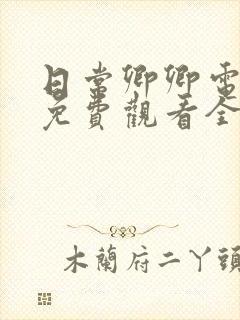 日常卿卿電
免費觀看全
木蘭府二丫頭